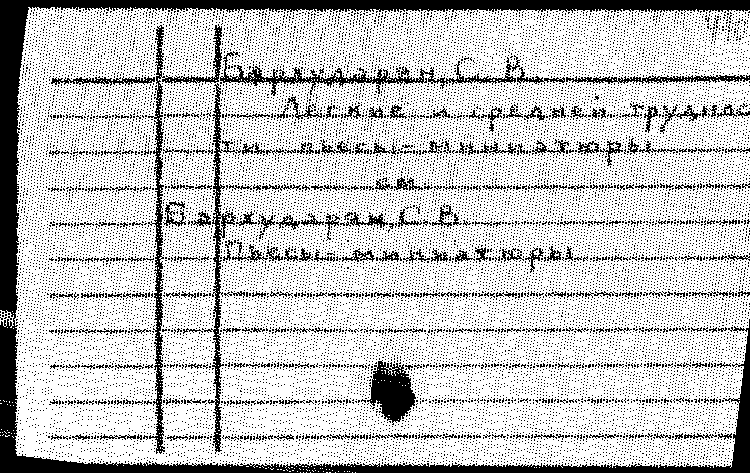 Бархударян, С. В.
Легкие и средней труднос
ти пьесы-миниатюры
см.
Бархударян, С. В.
Пьесы-миниатюры